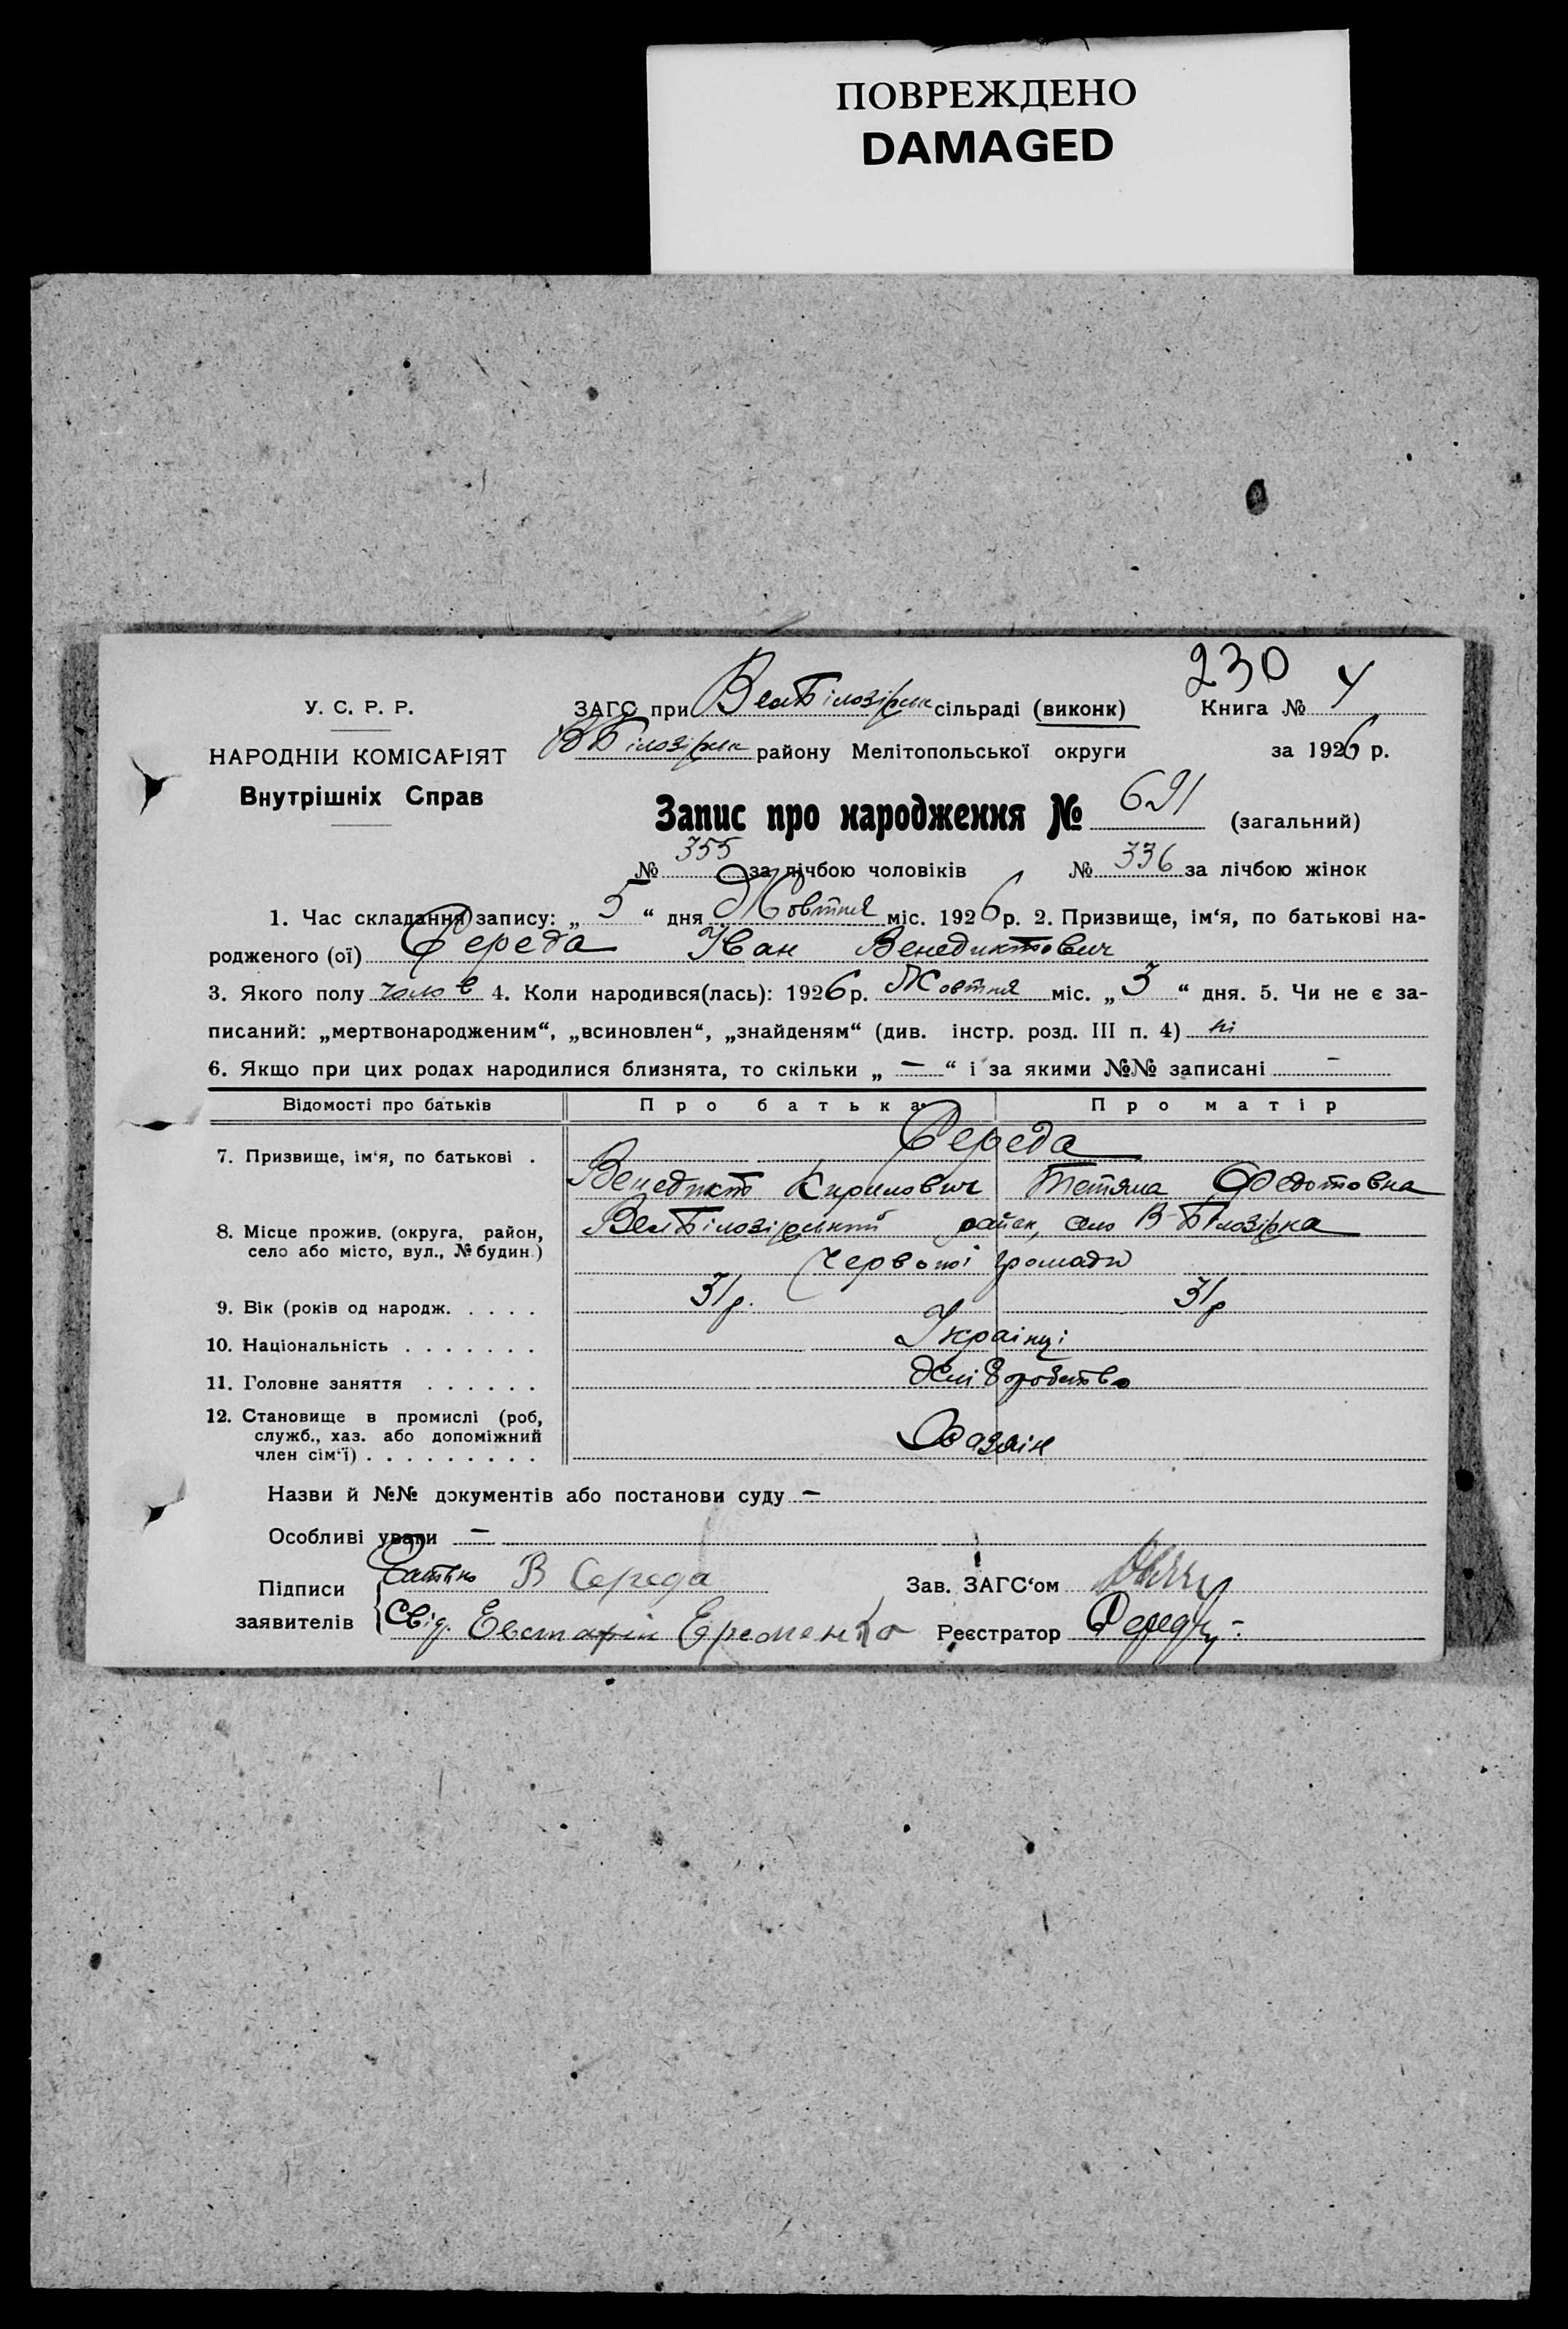 ПОВРЕЖДЕНО
DAMAGED
230
У. С. Р. Р.
ЗАГС при ВелБілозірськ сільраді (виконк) Книга № 4
НАРОДНІЙ КОМІСАРІЯТ
ВБілозірськ району Мелітопольської округи за 1926 р.
Внутрішніх Справ
Запис про народження № 691 (загальний)
№ 355 за лічбою чоловіків № 336 за лічбою жінок
1. Час складання запису: „ 5 “ дня Жовтня міс. 1926 р. 2. Призвище, ім‘я, по батькові на-
родженого (ої) Середа Іван Венедиктович
3. Якого полу чолов 4. Коли народився(лась): 1926 р. Жовтня міс. „ 3 “ дня. 5. Чи не є за-
писаний: „мертвонародженим“, „всиновлен“, „знайденям“ (див. інстр. розд. III п. 4) ні
6. Якщо при цих родах народилися близнята, то скільки „ — “ і за якими №№ записані —
Відомості про батьків Про батька Про матір
7. Призвище, ім‘я, по батькові . Середа
Венедикт Кирилович Тетяна Федотовна
8. Місце прожив. (округа, район, село або місто, вул., № будин.) ВелБілозірський район, село В-Білозірка
Червоної громади
9. Вік (років од народж. . . . . 31 р. 31 р
10. Національність . . . . . . . Українці
11. Головне заняття . . . . . . Хліборобство
12. Становище в промислі (роб, служб., хаз. або допоміжний член сім‘ї) . . . . . . . . . Хазяін
Назви й №№ документів або постанови суду —
Особливі уваги —
Підписи заявителів
Батько В Середа
Зав. ЗАГС‘ом
Свід. Евстафій Єременко
Реєстратор